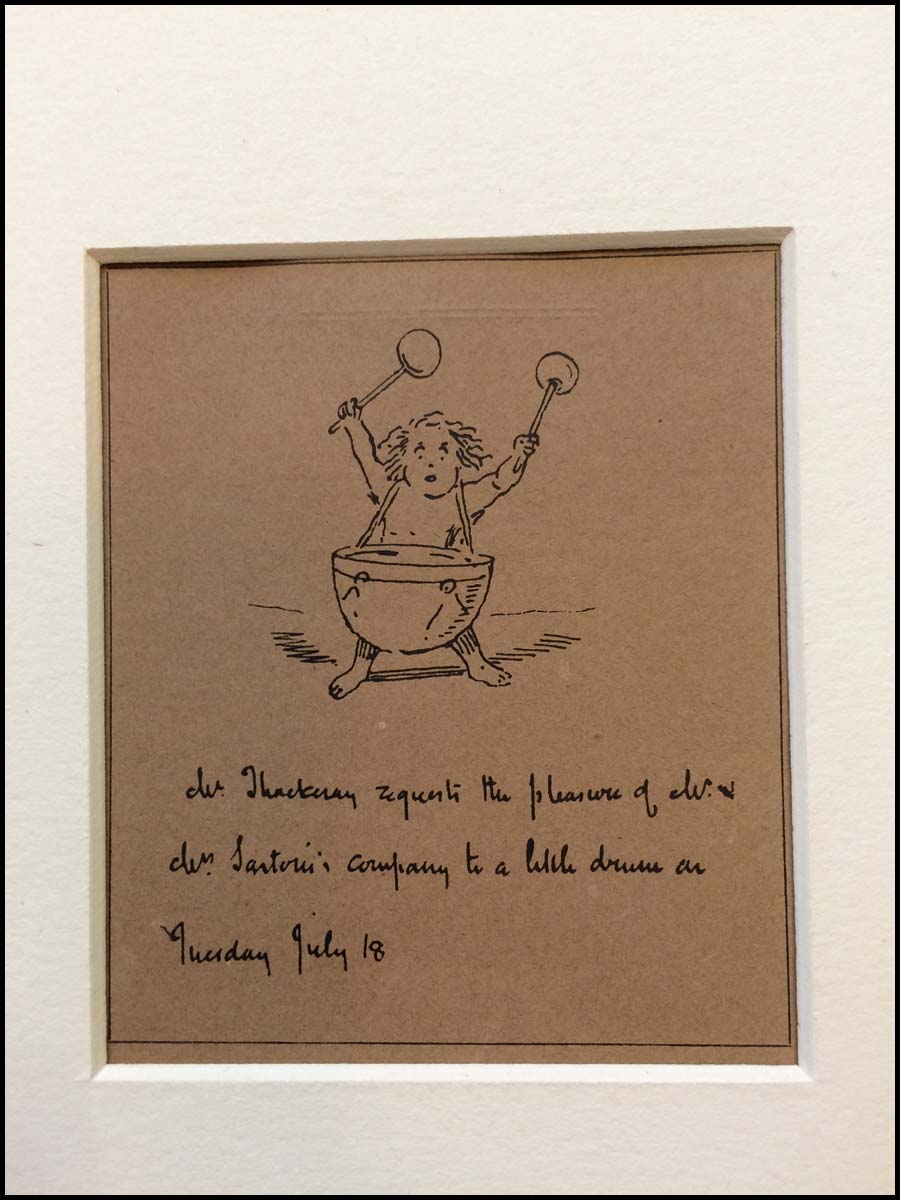 Mr. Thackeray requests the pleasure of Mr. &
Mrs. Sartoris's company to a little drum on
Tuesday July 18